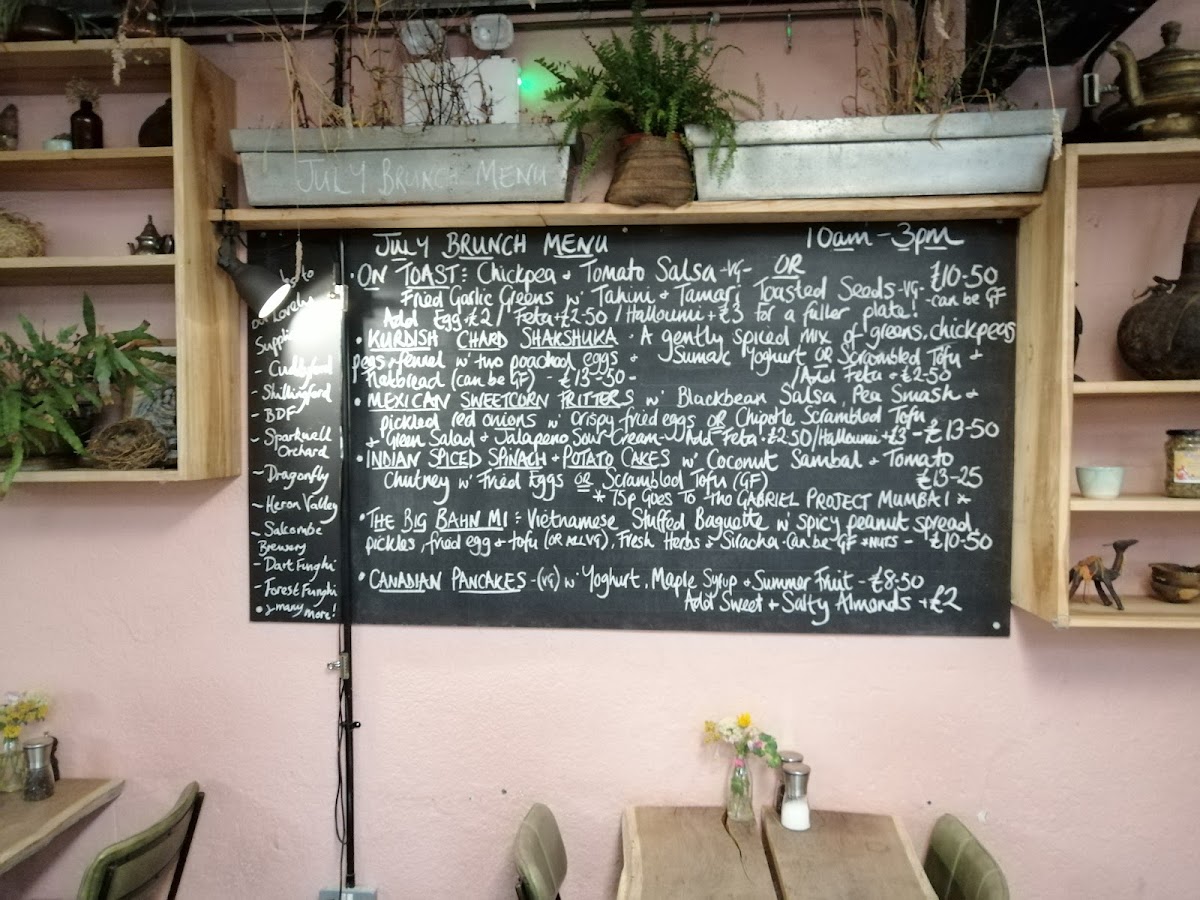 JULY BRUNCH MENU
JULY BRUNCH MENU 10am - 3pm
• ON TOAST : Chickpea + Tomato Salsa -VG- OR £10-50
Fried Garlic Greens w' Tahini + Tamari Toasted Seeds -VG- - can be GF
Add Egg +£2 / Feta +£2-50 / Halloumi +£3 for a fuller plate!
• KURDISH CHARD SHAKSHUKA - A gently spiced mix of greens, chickpeas
peas + fennel w' two poached eggs + Sumac Yoghurt OR Scrambled Tofu +
flatbread (can be GF) - £13-50 - / Add Feta +£2-50
• MEXICAN SWEETCORN FRITTERS w' Blackbean Salsa, Pea Smash +
pickled red onions w' crispy fried eggs OR Chipotle Scrambled Tofu
+ Green Salad + Jalapeno Sour Cream - Add Feta +£2.50 / Halloumi +£3 - £13-50
• INDIAN SPICED SPINACH + POTATO CAKES w' Coconut Sambal + Tomato
Chutney w' Fried Eggs OR Scrambled Tofu (GF) £13-25
* 75p GOES TO THE GABRIEL PROJECT MUMBAI *
• THE BIG BAHN MI : Vietnamese Stuffed Baguette w' spicy peanut spread
pickles, fried egg + tofu (OR ALL VG), Fresh Herbs + Siracha - Can be GF *NUTS - £10-50
• CANADIAN PANCAKES - (VG) w' Yoghurt, Maple Syrup + Summer Fruit - £8.50
Add Sweet + Salty Almonds +£2
to
our Lovely
Suppli
- Cuddyford
- Shillingford
- BDF
- Sparkwell
Orchard
- Dragonfly
- Heron Valley
- Salcombe
Brewery
- Dart Funghi
- Forest Funghi
• + many more!